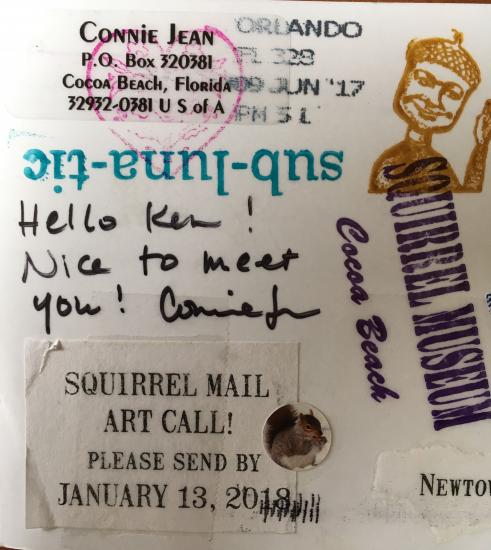 CONNIE JEAN
P.O. BOX 320381
COCOA BEACH, FLORIDA
32932-0381 U S of A
ORLANDO
FL 328
09 JUN '17
PM 3 L
sub-luna-tic
Hello Ken!
Nice to meet
you! Connie Jn
SQUIRREL MUSEUM
Cocoa Beach
SQUIRREL MAIL
ART CALL!
PLEASE SEND BY
JANUARY 13, 2018
NEWTOW